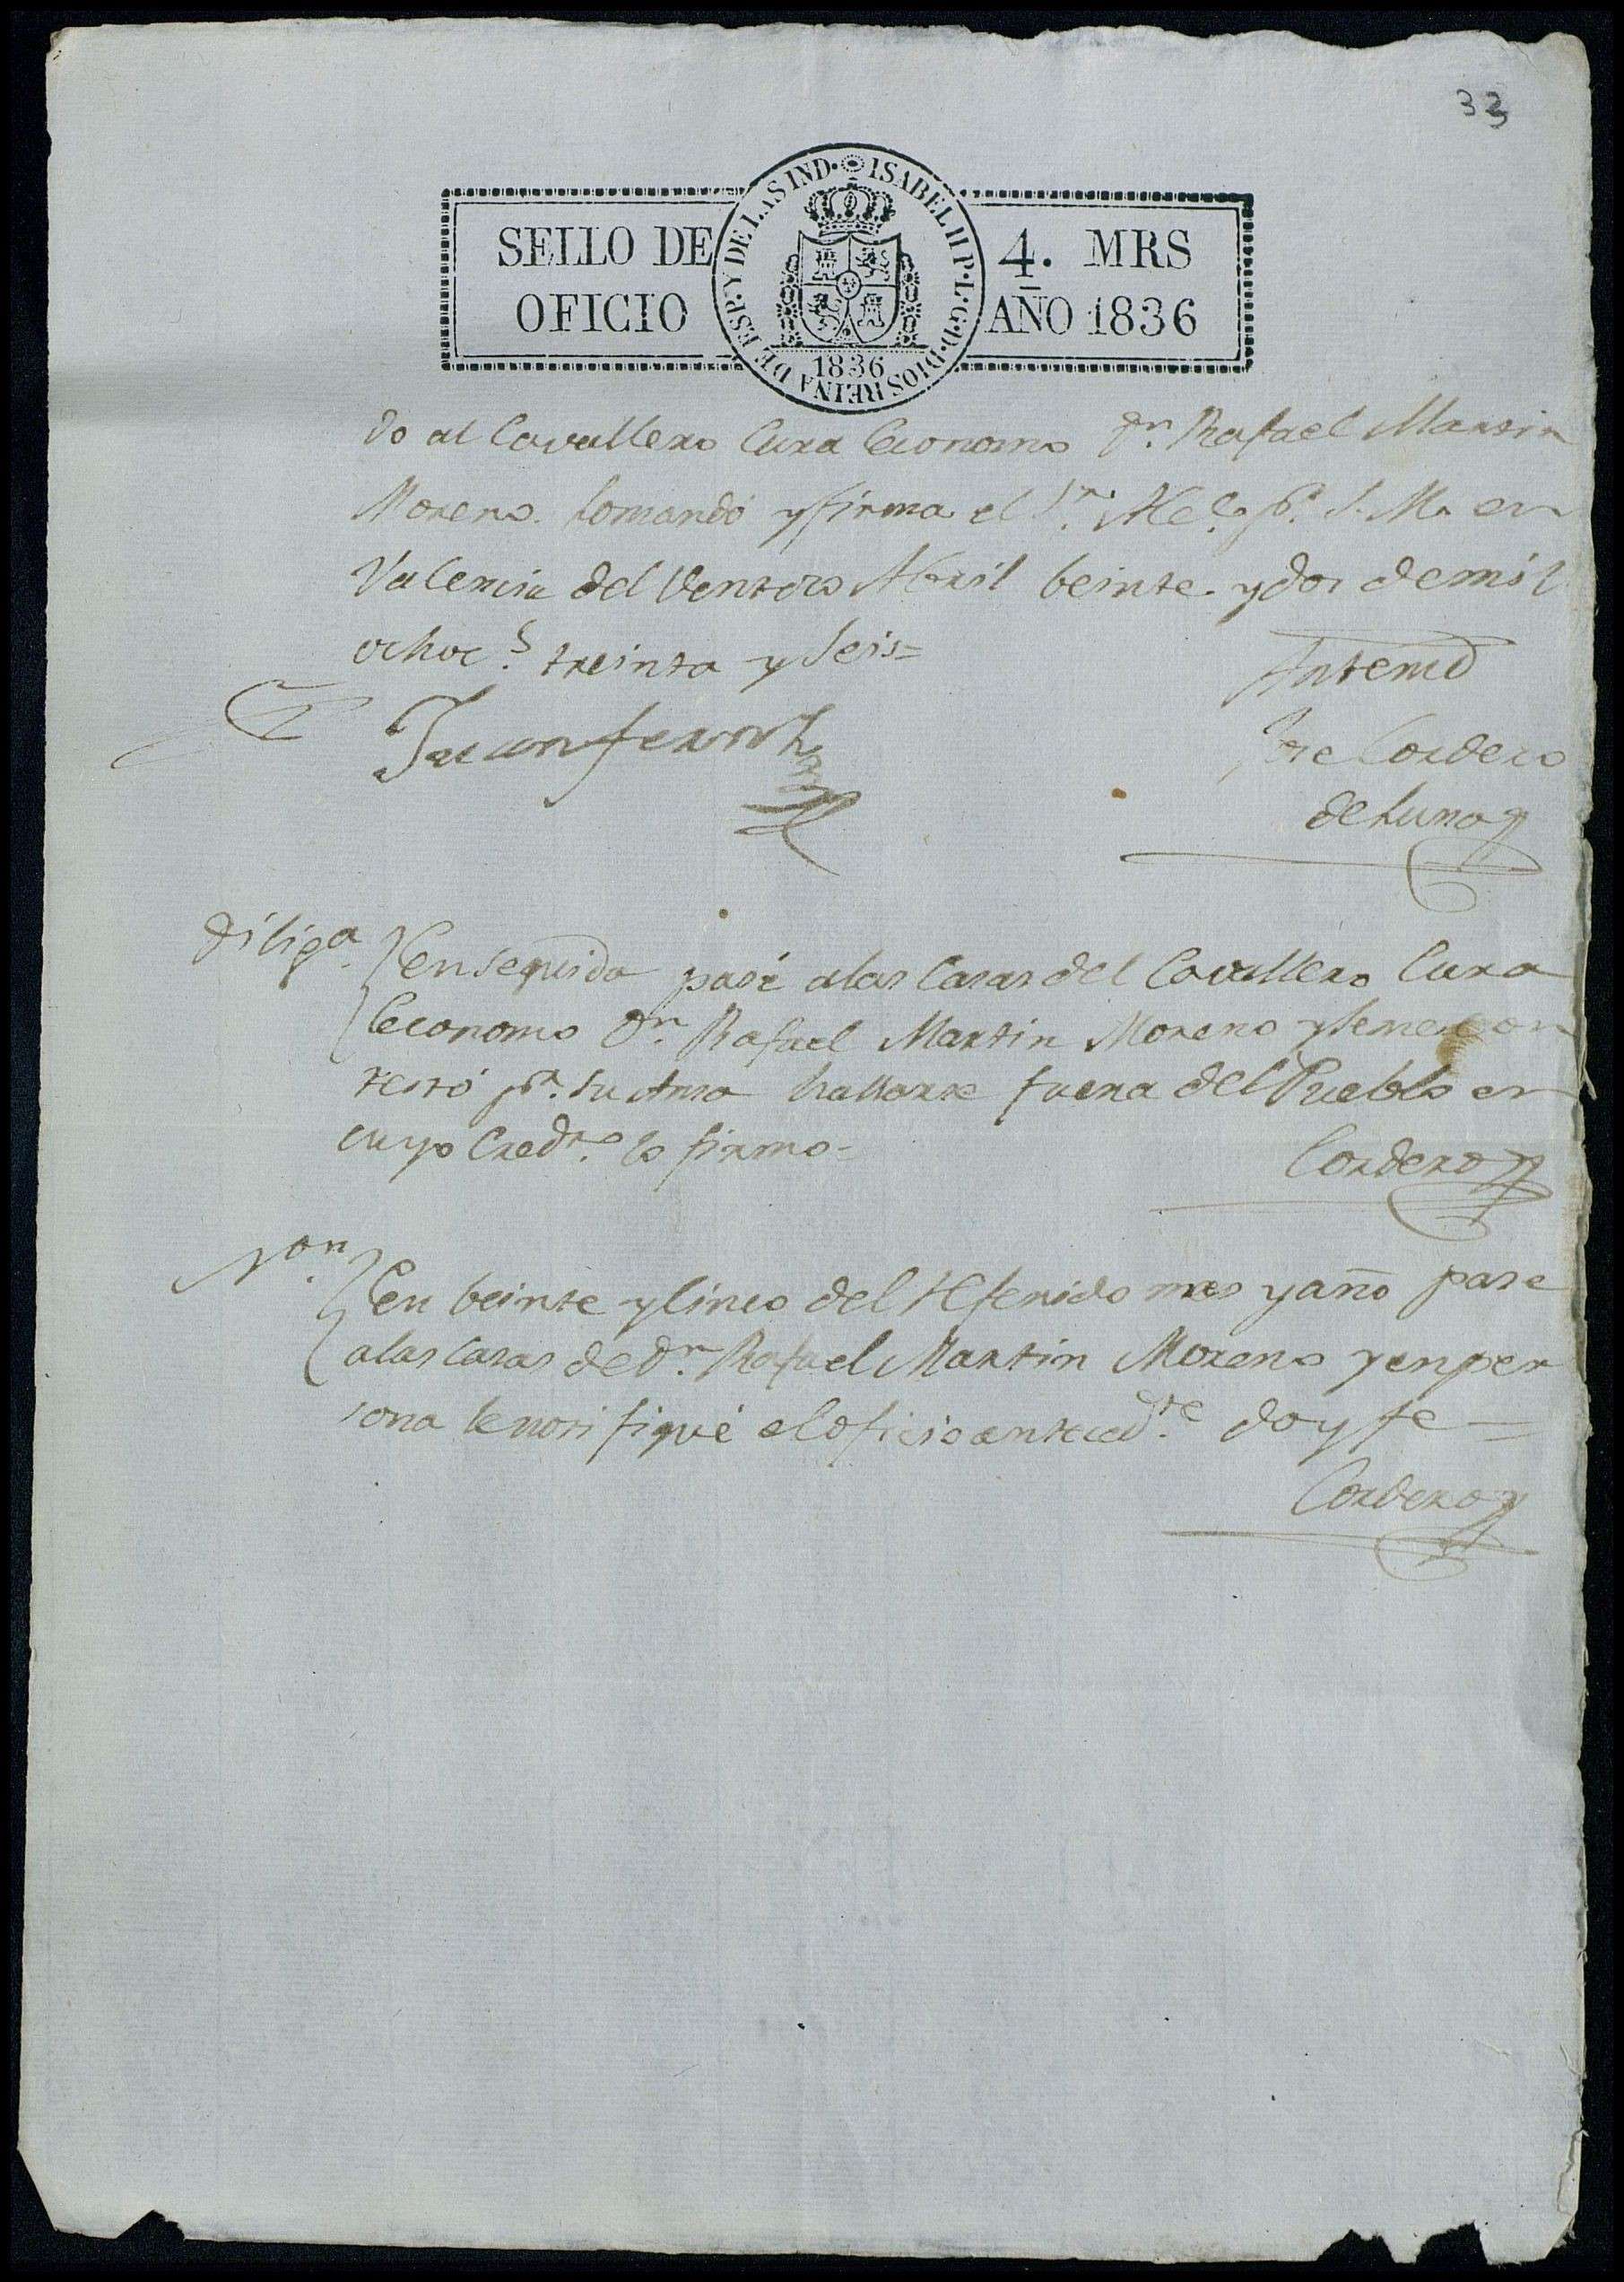 33
SELLO DE OFICIO
ISABEL II P. L. G. D. DIOS REINA DE ESP. Y DE LAS IND.
1836
4. MRS
AÑO 1836
do al Cavallero Cura Economo Dn. Rafael Martin
Moreno. lo mandó y firma el Sr. Alce. pr. S. M. en
Valencia del Ventoso Abril beinte y dos de mil
ochocs. treinta y Seis=
Antemi
Juan
Jose Cordero
de Luna
diliga.
en seguida pasé a las Casas del Cavallero Cura
Economo Dn. Rafael Martin Moreno y se me con
testó pr. su Ama hallarse fuera del Pueblo en
cuyo Credto. lo firmo=
Cordero
Non.
en beinte y Cinco del Referido mes y año pase
a las Casas de Dn. Rafael Martin Moreno y en per
sona le notifiqué el oficio antecedte. doy fe=
Cordero